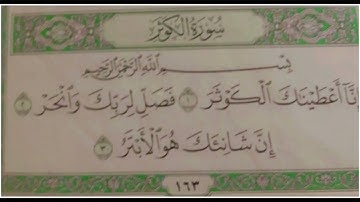 سُورَةُ الْكَوْثَرِ
بِسْمِ اللَّهِ الرَّحْمَٰنِ الرَّحِيمِ
إِنَّا أَعْطَيْنَاكَ الْكَوْثَرَ ١ فَصَلِّ لِرَبِّكَ وَانْحَرْ ٢
إِنَّ شَانِئَكَ هُوَ الْأَبْتَرُ ٣
١٦٣